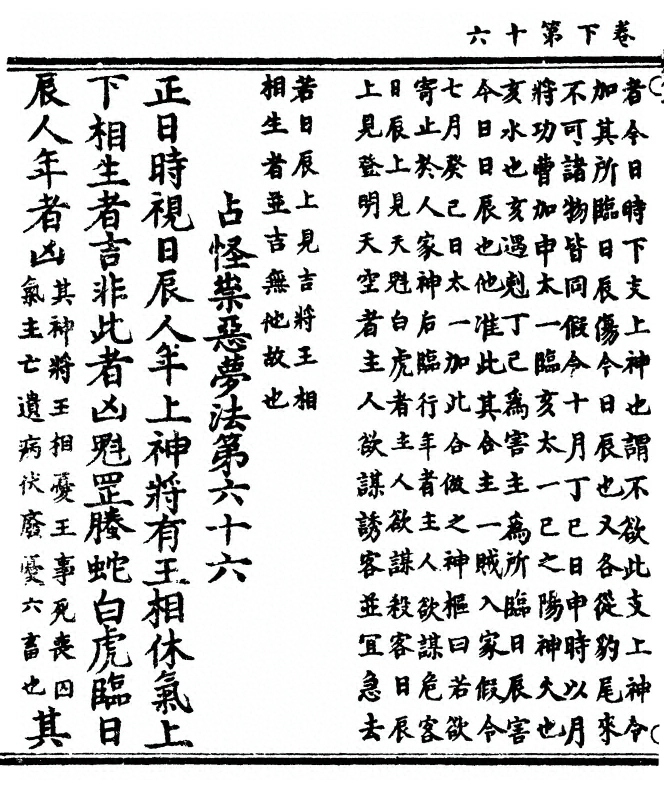 卷下第十六
者今日時下支上神也謂不欲此支上神令
加其所臨日辰傷今日辰也又各從豹尾來
不可諸物皆同假令十月丁巳日申時以月
將功曹加申太一臨亥太一巳之陽神火也
亥水也亥遇剋丁巳為害主為所臨日辰害
今日日辰也他准此其合主一賊入家假令
七月癸巳日太一加此合做之神樞曰若欲
寄止於人家神后臨行年者主人欲謀危客
日辰上見天魁白虎者主人欲謀殺客日辰
上見登明天空者主人欲謀誘客並宜急去
若日辰上見吉將王相
相生者並吉無他故也
占怪祟惡夢法第六十六
正日時視日辰人年上神將有王相休氣上
下相生者吉非此者凶魁罡螣蛇白虎臨日
辰人年者凶其神將王相憂王事死喪囚
氣主亡遺病伏廢憂六畜也其